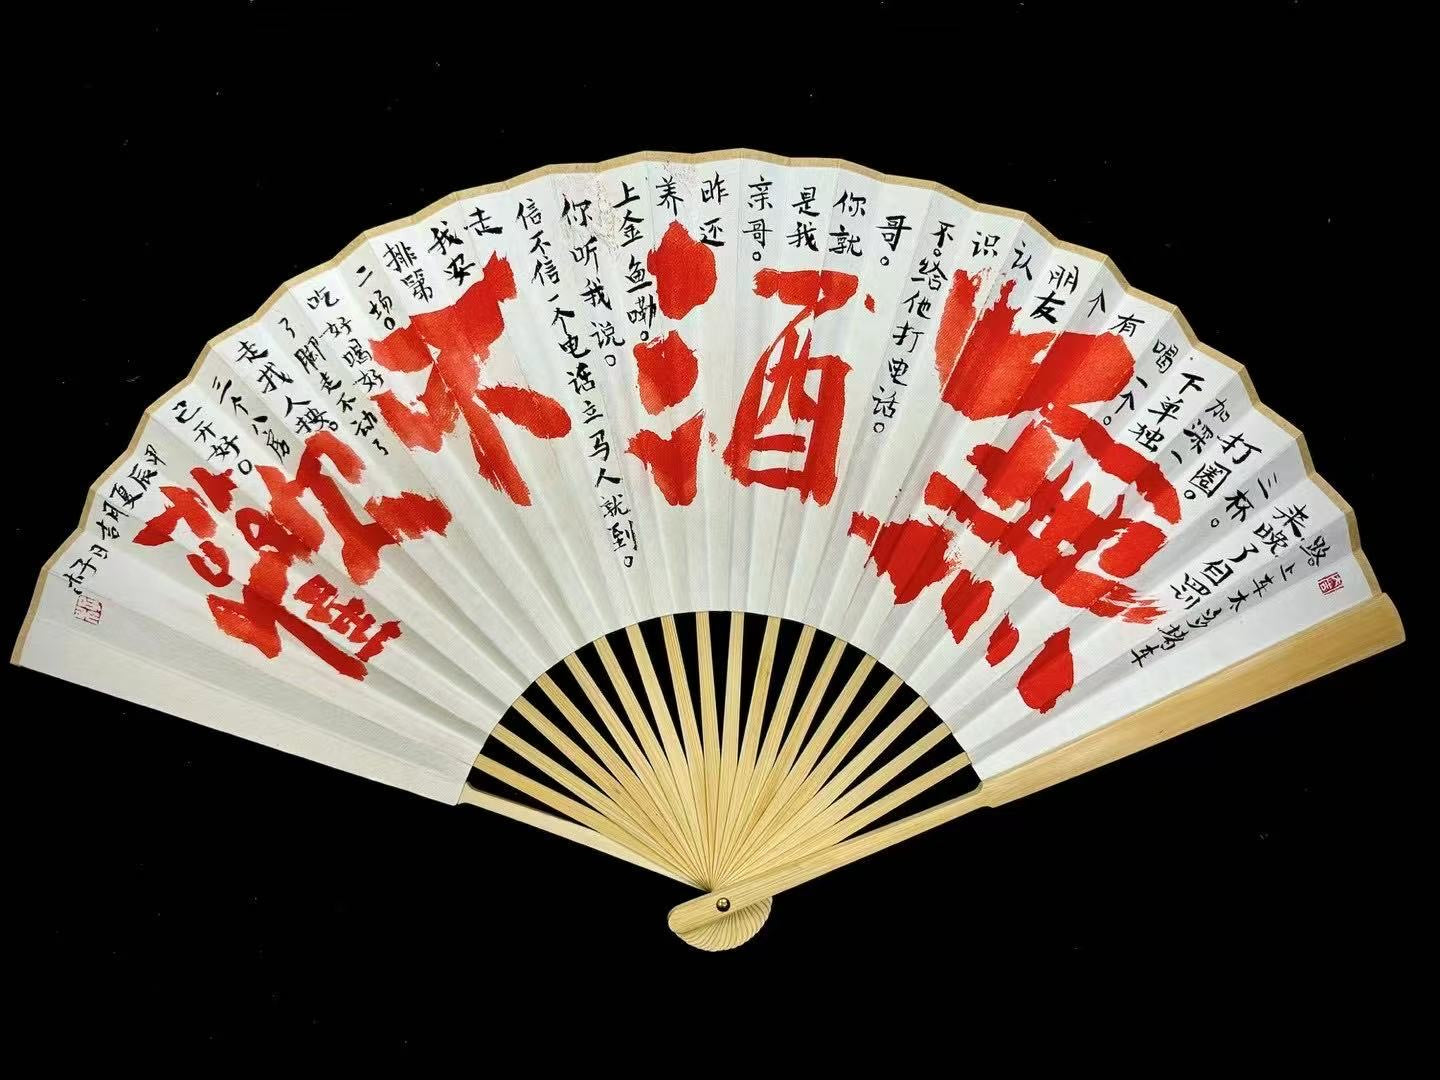 無酒不歡
路。上车太多堵车
来晚了自罚
三杯。
打圈。
加深一
下单独
喝一个。
有
个
朋友
认
识
不。给他打电话。
哥。
你就
是我
亲哥。
昨还
养
上金鱼嘞。
你听我说。
信不信一个电话立马人就到。
走
我安
排第
二场。
吃好喝好
了脚走不动了
走找人按。
三个八房
已开好。
甲辰夏月吉日